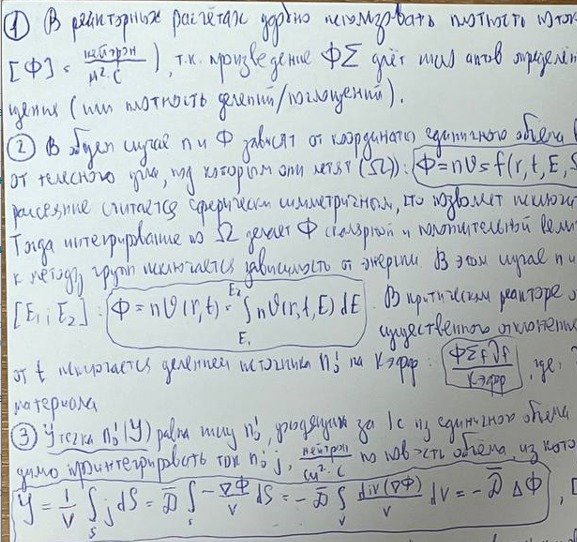 ① В реакторных расчётах удобно использовать плотность поток
[Ф] = нейтрон/м²·с, т.к. произведение ФΣ даёт число актов определён
щения (или плотность делений/поглощений).
② В общем случае n и Ф зависят от координаты единичного объёма
от телесного угла, под которым они летят (Ω): Ф = nϑ = f(r, t, E, Ω
рассеяние считается сферически симметричным, что позволяет исключи
Тогда интегрирование по Ω делает Ф скалярной и положительной вели
к методу групп исключается зависимость от энергии. В этом случае n и
[E₁; E₂]: Ф = nϑ(r,t) = ∫_{E₁}^{E₂} nϑ(r,t,E)dE. В критическом реакторе
существенного отклонени
от t исключается делением источника n'₀ на Kэфф: ФΣfνf/Kэфф, где,
материала
③ Утечка n'₀ (У) равна числу n'₀, уходящих за 1с из единичного объёма
димо проинтегрировать ток n'₀ j, нейтрон/см²·с по пов-сть объёма, из кото
У = 1/V ∫_S j dS = D̄ ∫_S -∇Ф/V dS = -D̄ ∫_V div(∇Ф)/V dV = -D̄ ΔФ,